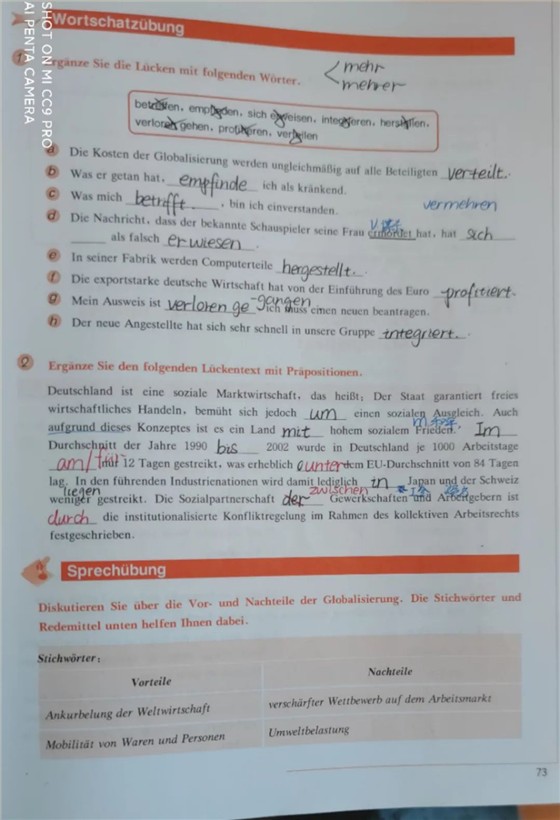 SHOT ON MI CC9 PRO
AI PENTA CAMERA
Wortschatzübung
1 Ergänzen Sie die Lücken mit folgenden Wörter.
mehr
mehrer
betreffen, empfinden, sich erweisen, integrieren, herstellen,
verloren gehen, profitieren, verteilen
a Die Kosten der Globalisierung werden ungleichmäßig auf alle Beteiligten verteilt.
b Was er getan hat, empfinde ich als kränkend.
c Was mich betrifft, bin ich einverstanden.
vermehren
d Die Nachricht, dass der bekannte Schauspieler seine Frau ermordet hat, hat sich
als falsch erwiesen.
e In seiner Fabrik werden Computerteile hergestellt.
f Die exportstarke deutsche Wirtschaft hat von der Einführung des Euro profitiert.
g Mein Ausweis ist verloren ge-gangen ich muss einen neuen beantragen.
h Der neue Angestellte hat sich sehr schnell in unsere Gruppe integriert.
2 Ergänze Sie den folgenden Lückentext mit Präpositionen.
Deutschland ist eine soziale Marktwirtschaft, das heißt: Der Staat garantiert freies
wirtschaftliches Handeln, bemüht sich jedoch um einen sozialen Ausgleich. Auch
aufgrund dieses Konzeptes ist es ein Land mit hohem sozialem Frieden. Im
Durchschnitt der Jahre 1990 bis 2002 wurde in Deutschland je 1000 Arbeitstage
am/ 12 Tagen gestreikt, was erheblich unter dem EU-Durchschnitt von 84 Tagen
lag. In den führenden Industrienationen wird damit lediglich in Japan und der Schweiz
liegen
zwischen
weniger gestreikt. Die Sozialpartnerschaft der Gewerkschaften und Arbeitgebern ist
durch die institutionalisierte Konfliktregelung im Rahmen des kollektiven Arbeitsrechts
festgeschrieben.
Sprechübung
Diskutieren Sie über die Vor- und Nachteile der Globalisierung. Die Stichwörter und
Redemittel unten helfen Ihnen dabei.
Stichwörter:
Vorteile Nachteile
Ankurbelung der Weltwirtschaft verschärfter Wettbewerb auf dem Arbeitsmarkt
Mobilität von Waren und Personen Umweltbelastung
73